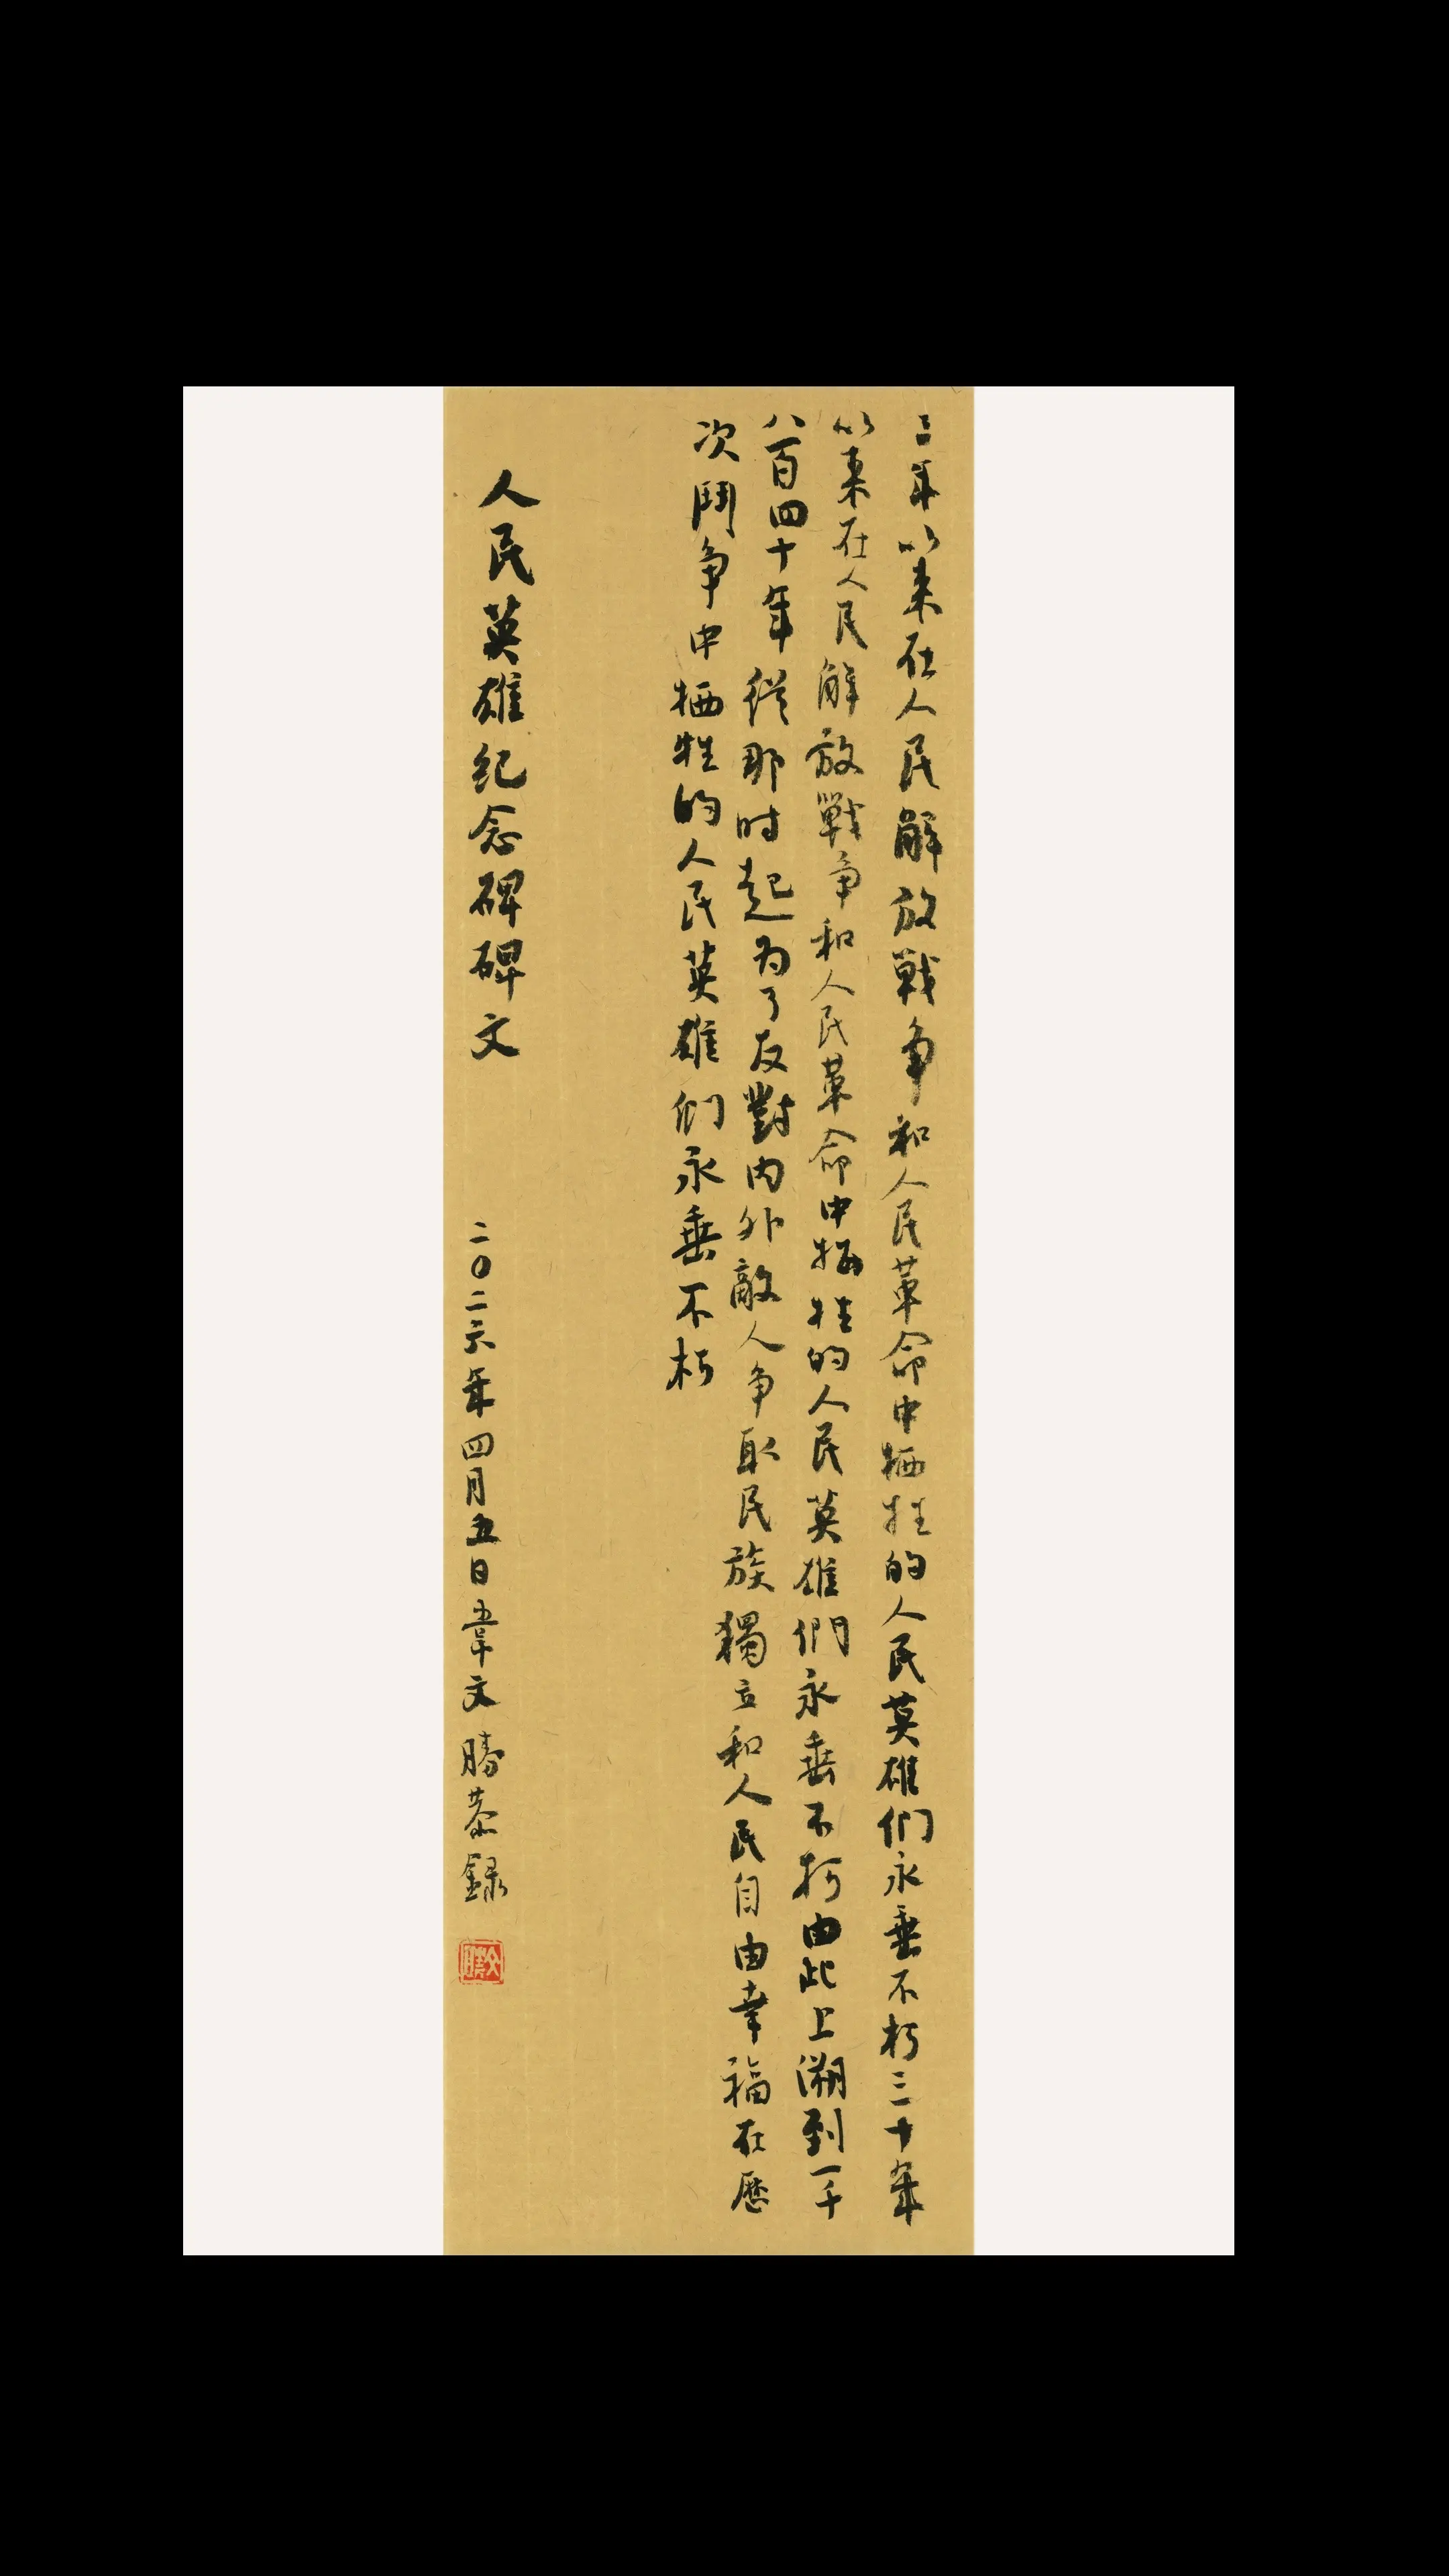 三年以来在人民解放戰争和人民革命中牺牲的人民英雄们永垂不朽三十年
以来在人民解放戰争和人民革命中牺牲的人民英雄們永垂不朽由此上溯到一千
八百四十年從那时起为了反對内外敵人争取民族獨立和人民自由幸福在歷
次鬥争中牺牲的人民英雄们永垂不朽
人民英雄纪念碑碑文
二〇二六年四月五日韋文勝恭録
文勝